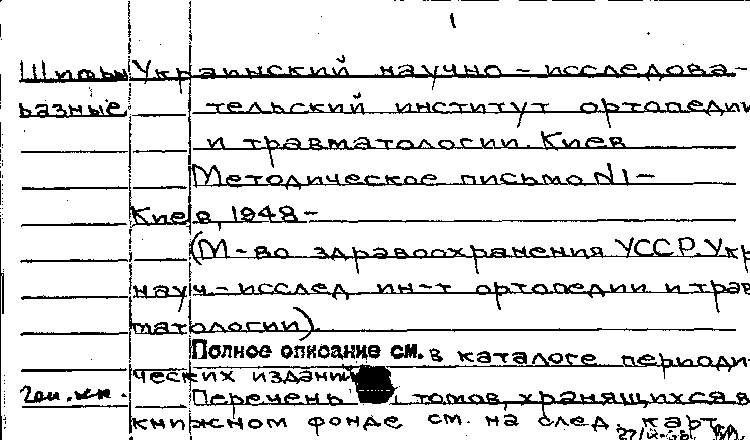 1
Шифры Украинский научно-исследова-
разные тельский институт ортопедии
и травматологии. Киев
Методическое письмо N1-
Киев, 1948-
(М-во здравоохранения УССР. Укр
науч.-исслед. ин-т ортопедии и трав
матологии).
Полное описание см. в каталоге периоди-
ческих изданий
Перечень томов, хранящихся в
книжном фонде см. на след. карт.